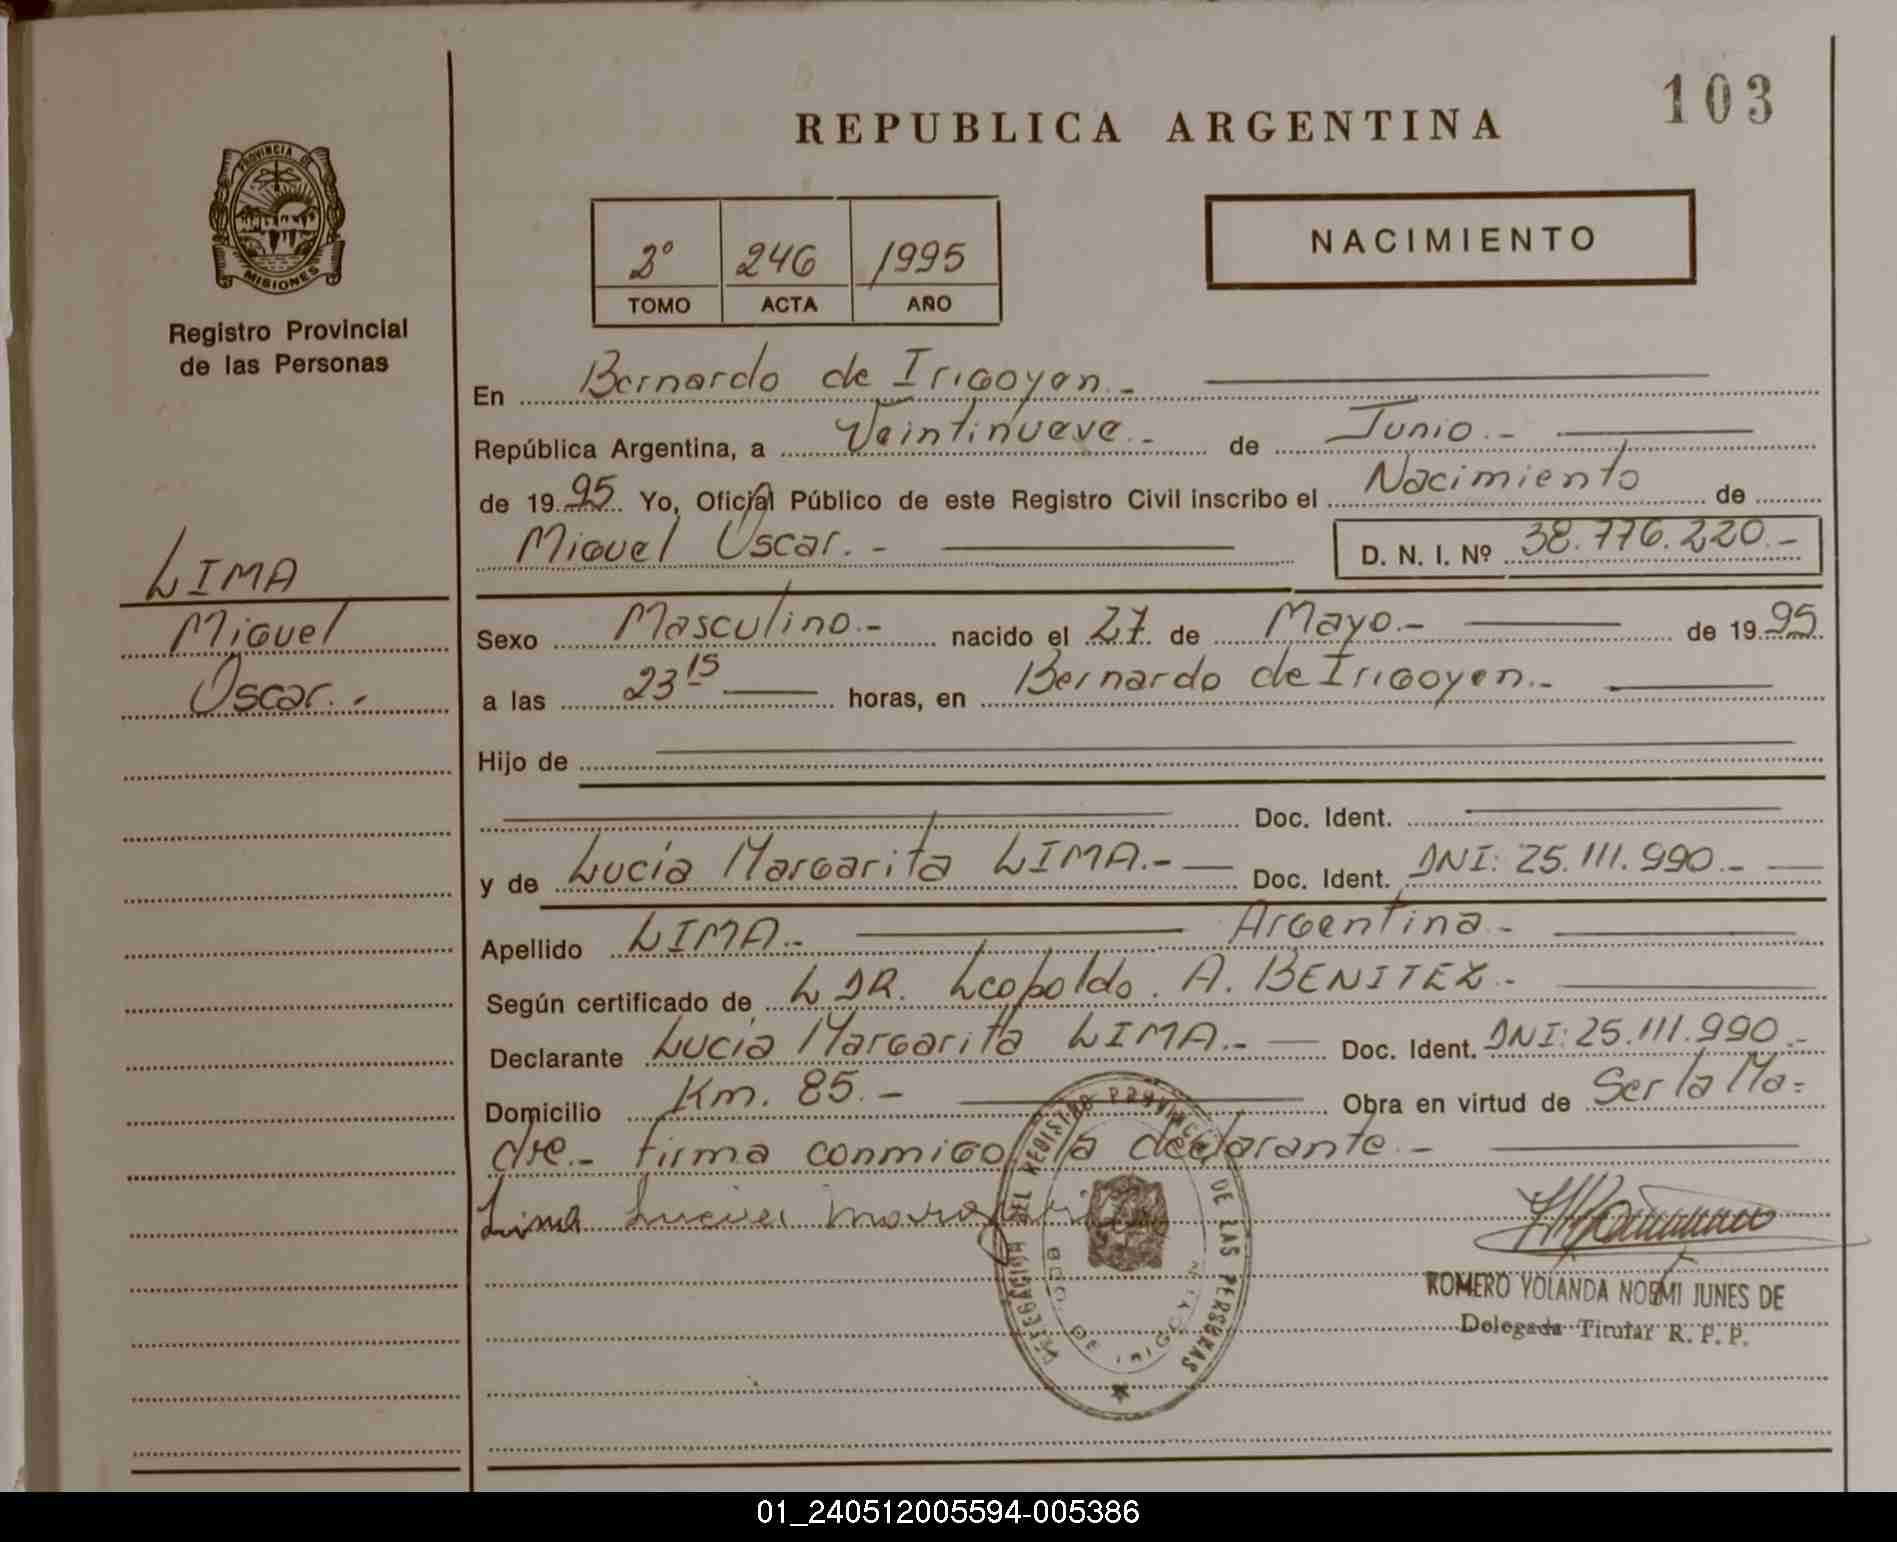 103
REPUBLICA ARGENTINA
PROVINCIA DE
MISIONES
Registro Provincial
de las Personas
NACIMIENTO
2º 246 1995
TOMO ACTA AÑO
En Bernardo de Irigoyen.-
República Argentina, a Veintinueve.- de Junio.-
de 1995. Yo, Oficial Público de este Registro Civil inscribo el Nacimiento de
Miguel Oscar.- D. N. I. Nº 38.776.220.-
LIMA
Miguel
Oscar.-
Sexo Masculino.- nacido el 27 de Mayo.- de 1995
a las 23 15 horas, en Bernardo de Irigoyen.-
Hijo de
Doc. Ident.
y de Lucía Margarita LIMA.- Doc. Ident. DNI: 25.111.990.-
Apellido LIMA.- Argentina.-
Según certificado de DR. Leopoldo. A. BENITEZ.-
Declarante Lucía Margarita LIMA.- Doc. Ident. DNI: 25.111.990.-
Domicilio Km. 85.- Obra en virtud de Ser la Ma=
dre.- firma conmigo la declarante.-
Lima Lucia
DELEGACION DEL REGISTRO PROVINCIAL DE LAS PERSONAS
BDO. DE IRIGOYEN
ROMERO YOLANDA NOEMI JUNES DE
Delegada Titular R. P. P.
01_240512005594-005386